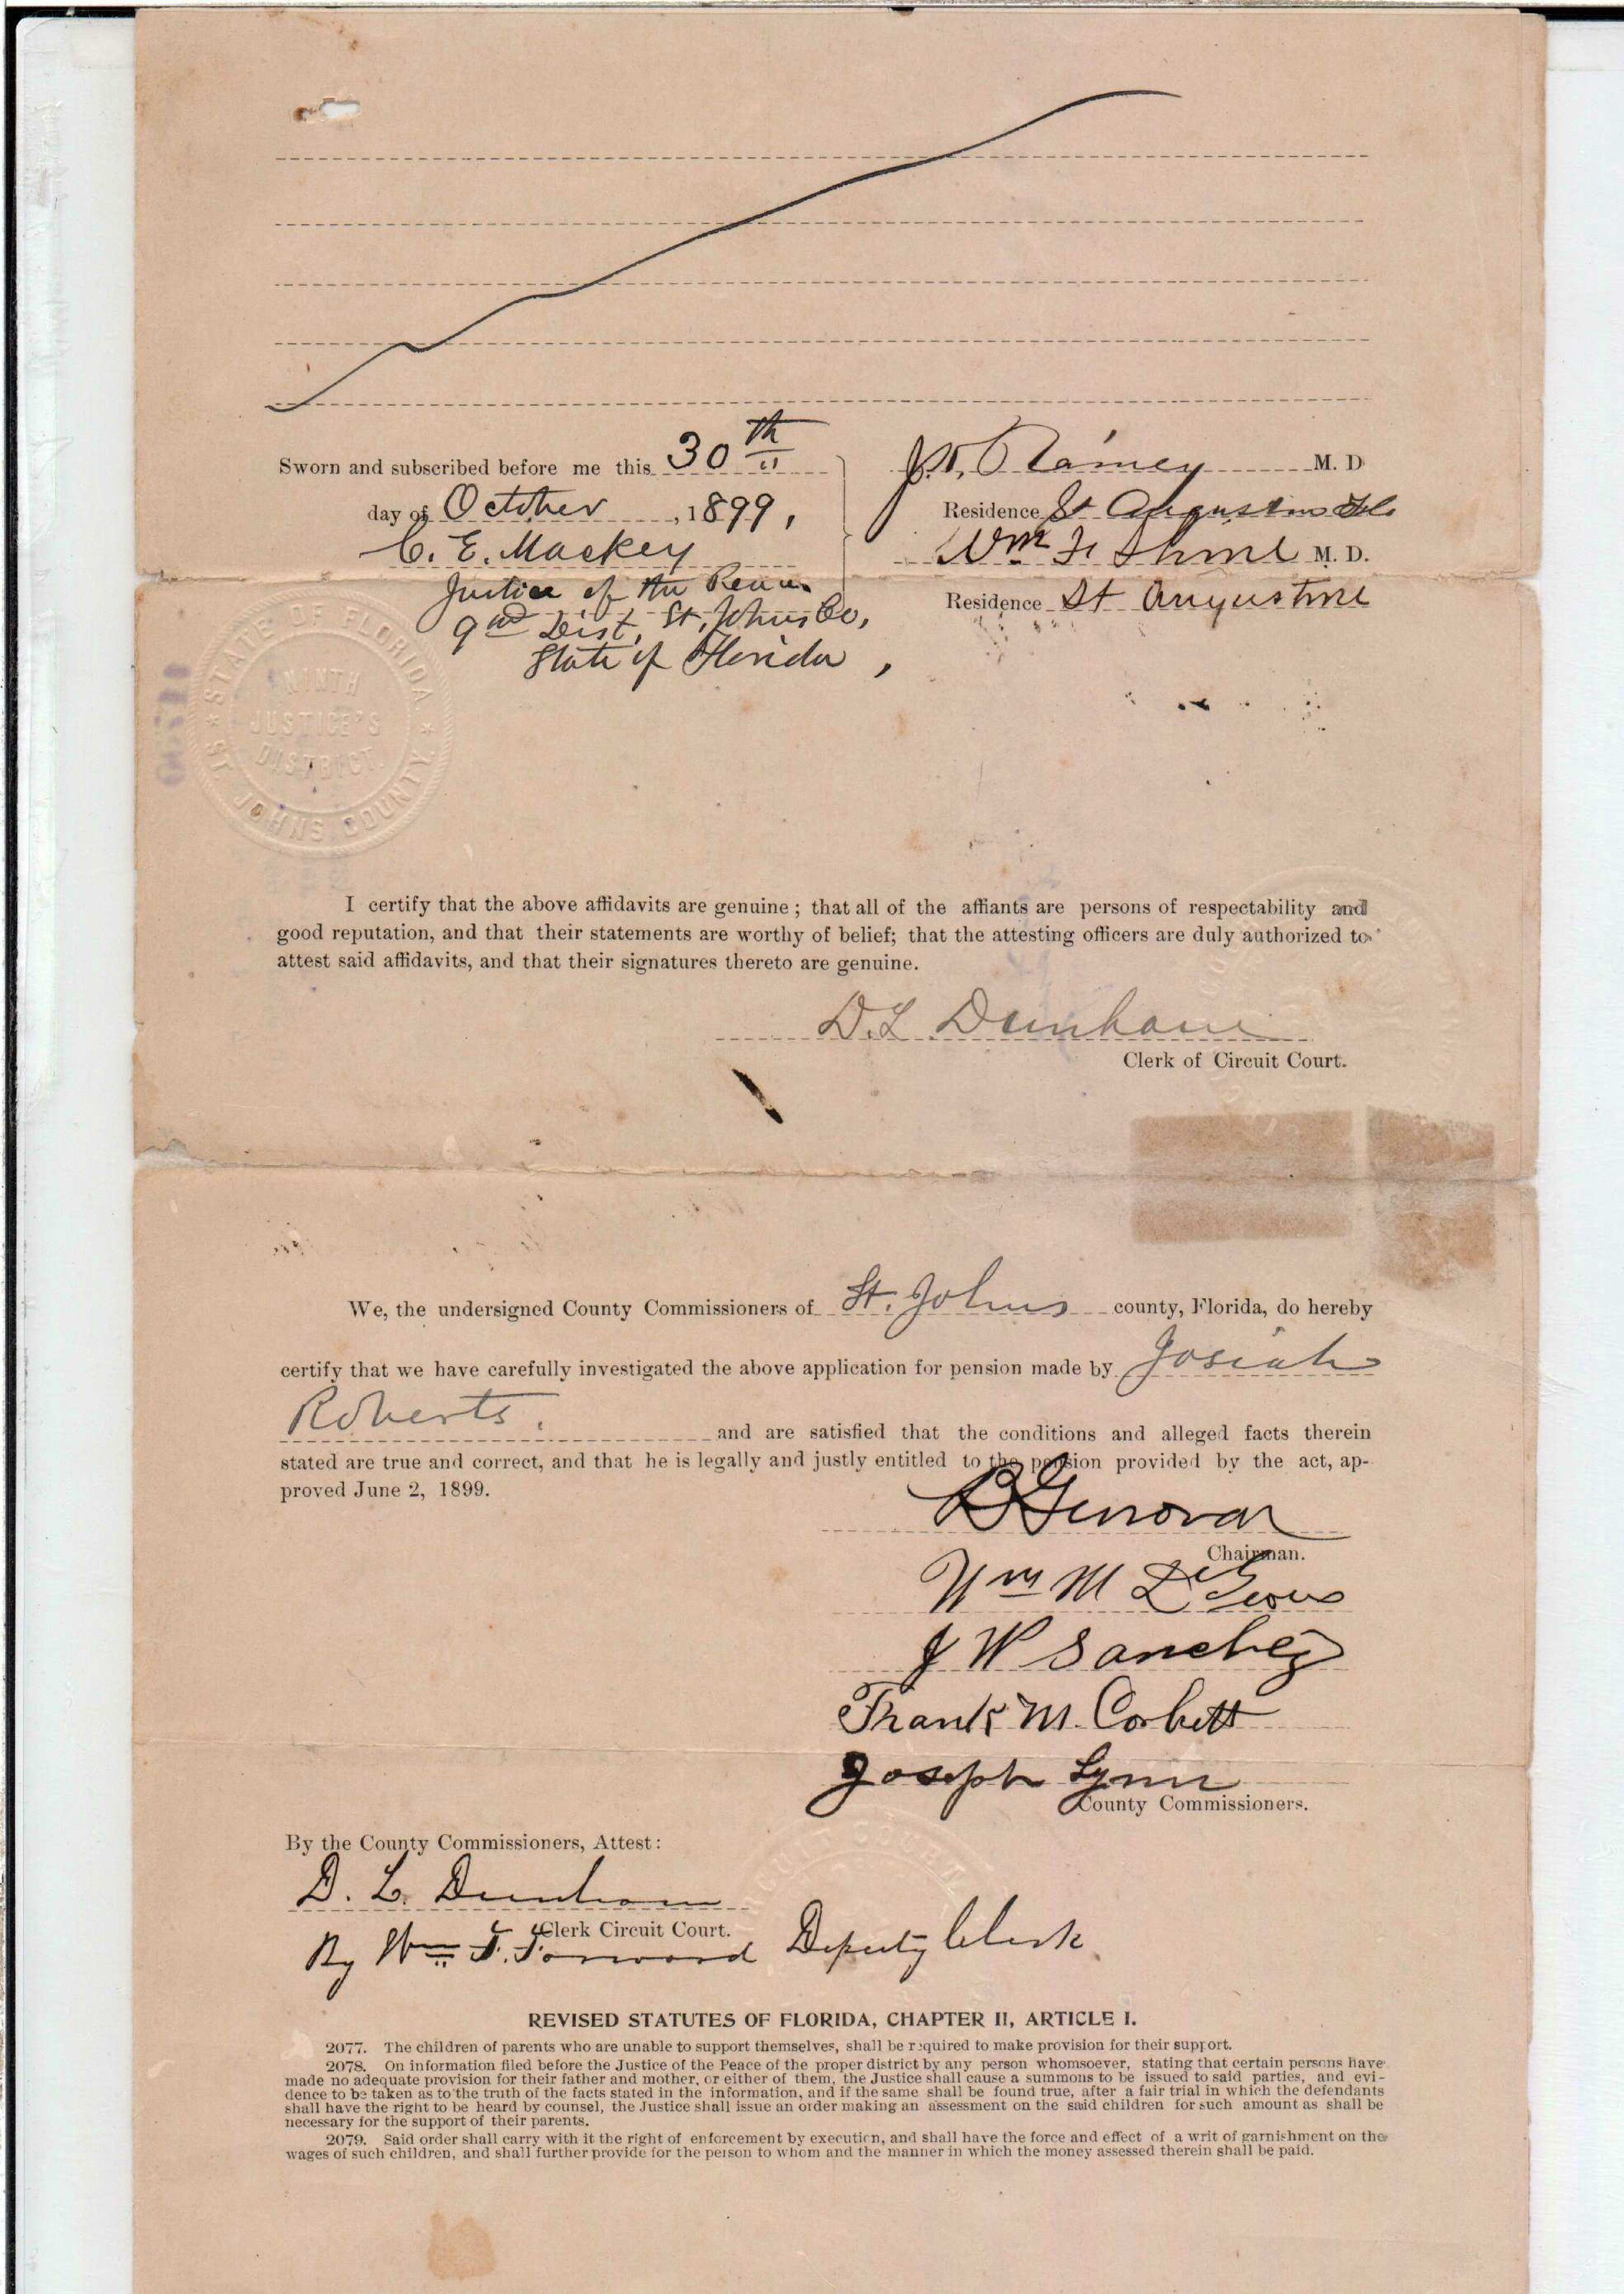 Sworn and subscribed before me this 30th
day of October, 1899,
C. E. Mackey
Justice of the Peace
9th Dist, St. Johns Co,
State of Florida,
Ramey M. D
Residence St Augustine Fla
Wm F Shine M. D.
Residence St Augustine
STATE OF FLORIDA
NINTH
JUSTICE'S
DISTRICT.
ST JOHNS COUNTY
I certify that the above affidavits are genuine; that all of the affiants are persons of respectability and
good reputation, and that their statements are worthy of belief; that the attesting officers are duly authorized to
attest said affidavits, and that their signatures thereto are genuine.
D. L. Dunham
Clerk of Circuit Court.
We, the undersigned County Commissioners of St. Johns county, Florida, do hereby
certify that we have carefully investigated the above application for pension made by Josiah
Roberts. and are satisfied that the conditions and alleged facts therein
stated are true and correct, and that he is legally and justly entitled to the pension provided by the act, ap-
proved June 2, 1899.
B Genovar
Chairman.
Wm M
J W Sanchez
Frank M. Corbett
Joseph Lynn
County Commissioners.
By the County Commissioners, Attest:
D. L. Dunham
Clerk Circuit Court.
By Wm F. Forward Deputy Clerk
REVISED STATUTES OF FLORIDA, CHAPTER II, ARTICLE I.
2077. The children of parents who are unable to support themselves, shall be required to make provision for their support.
2078. On information filed before the Justice of the Peace of the proper district by any person whomsoever, stating that certain persons have
made no adequate provision for their father and mother, or either of them, the Justice shall cause a summons to be issued to said parties, and evi-
dence to be taken as to the truth of the facts stated in the information, and if the same shall be found true, after a fair trial in which the defendants
shall have the right to be heard by counsel, the Justice shall issue an order making an assessment on the said children for such amount as shall be
necessary for the support of their parents.
2079. Said order shall carry with it the right of enforcement by execution, and shall have the force and effect of a writ of garnishment on the
wages of such children, and shall further provide for the person to whom and the manner in which the money assessed therein shall be paid.